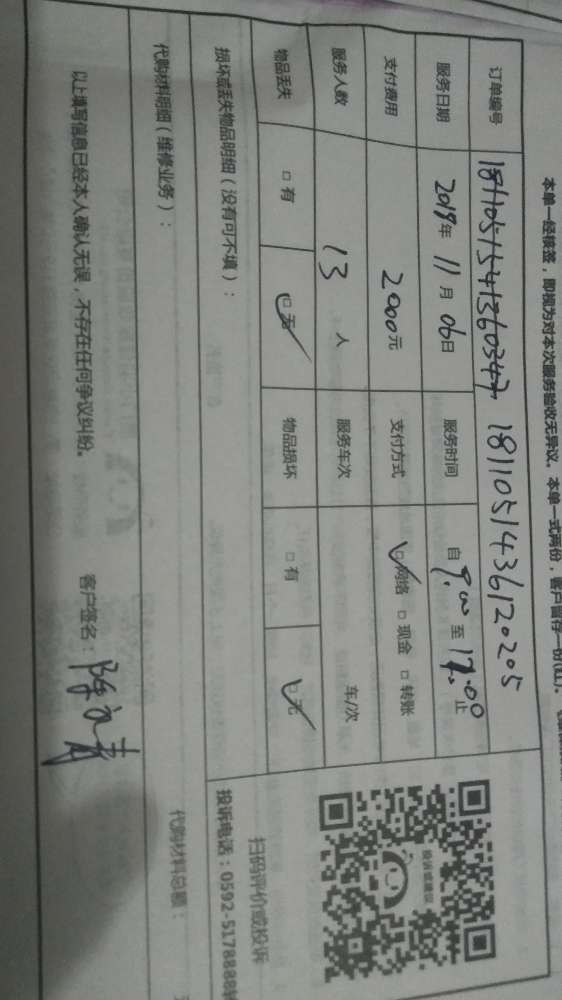 本单一经核签，即视为对本次服务验收无异议。本单一式两份，客户留存一份(红)。
订单编号 1811051541360347 181105143612020​5
服务日期 2019年 11月 06日 服务时间 自 9:00 至 17:00 止
支付费用 2000元 支付方式 网络 现金 转账
服务人数 13 人 服务车次 车/次
物品丢失 有 无 物品损坏 有 无
损坏或丢失物品明细（没有可不填）：
投诉或建议
扫码评价或投诉
投诉电话：0592-5178888转
代购材料明细（维修业务）： 代购材料总额：
以上填写信息已经本人确认无误，不存在任何争议纠纷。 客户签名：